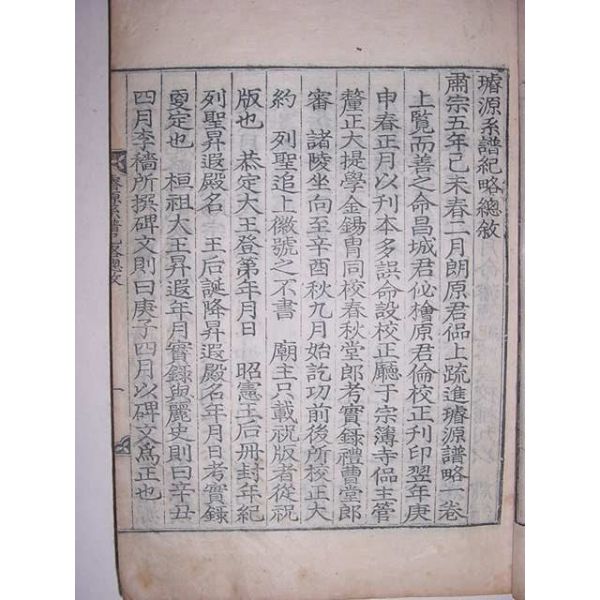 璿源系譜紀略總敘
肅宗五年己未春二月朗原君偘上疏進璿源譜略一卷
上覽而善之命昌城君佖檜原君倫校正刊印翌年庚
申春正月以刊本多誤命設校正廳于宗簿寺偘主管
釐正大提學金錫冑同校春秋堂郎考實錄禮曹堂郎
審 諸陵坐向至辛酉秋九月始訖功前後所校正大
約 列聖追上徽號之不書 廟主只載祝版者從祝
版也 恭定大王登第年月日 昭憲王后冊封年紀
列聖昇遐殿名 王后誕降昇遐殿名年月日考實錄
更定也 桓祖大王昇遐年月實錄與麗史則曰辛丑
四月李穡所撰碑文則曰庚子四月以碑文爲正也
璿源系譜紀略總敘
一